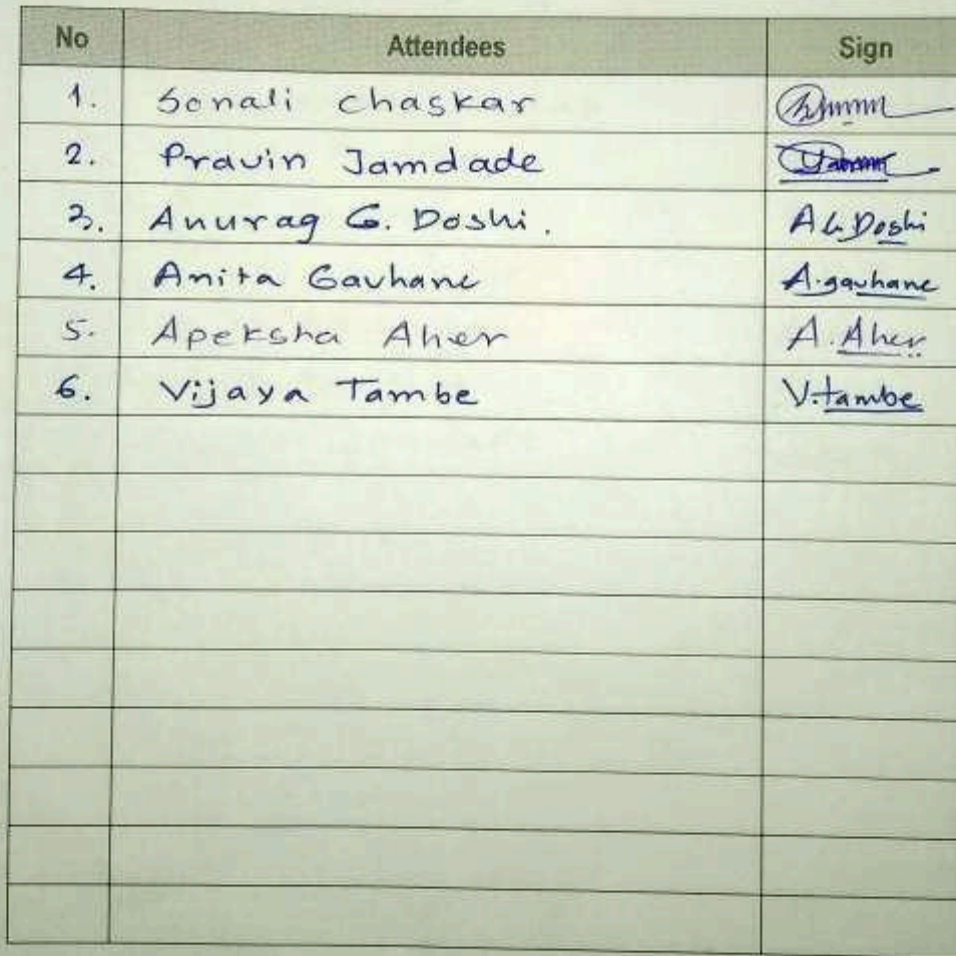 No Attendees Sign
1. Sonali Chaskar
2. Pravin Jamdade
3. Anurag G. Doshi. AG.Doshi
4. Anita Gavhane A.gavhane
5. Apeksha Aher A.Aher
6. Vijaya Tambe V.tambe